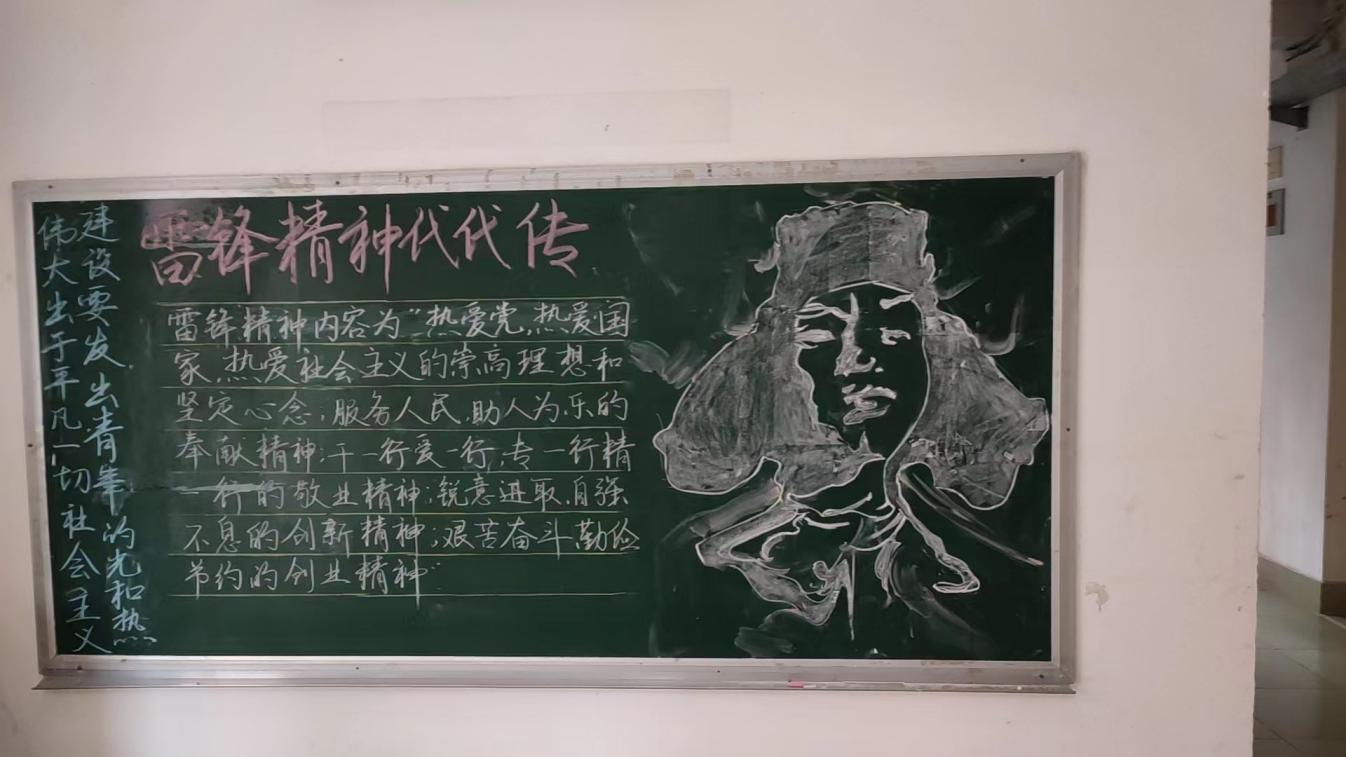 雷锋精神代代传
雷锋精神内容为“热爱党,热爱国
家,热爱社会主义的崇高理想和
坚定心念;服务人民,助人为乐的
奉献精神;干一行爱一行,专一行精
一行的敬业精神;锐意进取,自强
不息的创新精神;艰苦奋斗勤俭
节约的创业精神”
伟大出于平凡一切社会主义
建设要发出青春的光和热